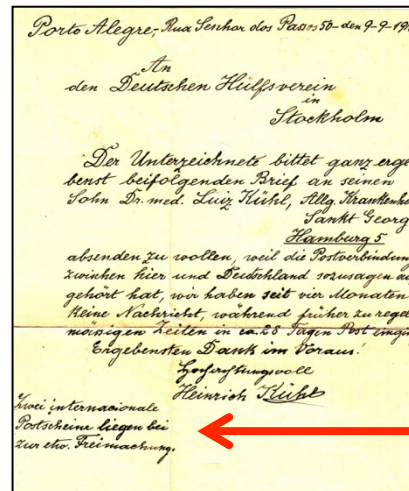 Porto Alegre, Rua Senhor dos Passos 50 - den 9-9-19
An
den Deutschen Hülfsverein
in
Stockholm
Der Unterzeichnete bittet ganz erge
benst beifolgenden Brief an seinen
Sohn Dr. med. Luiz Kühl, Allg. Krankenh
Sankt Georg
Hamburg 5
absenden zu wollen, weil die Postverbindun
zwischen hier und Deutschland sozusagen au
gehört hat, wir haben seit vier Monaten
keine Nachricht, während früher zu regel
mässigen Zeiten in ca. 28 Tagen Post eingin
Ergebensten Dank im Voraus.
Hochachtungsvoll
Heinrich Kühl
Zwei internacionale
Postscheine liegen bei
zur etw. Freimachung.